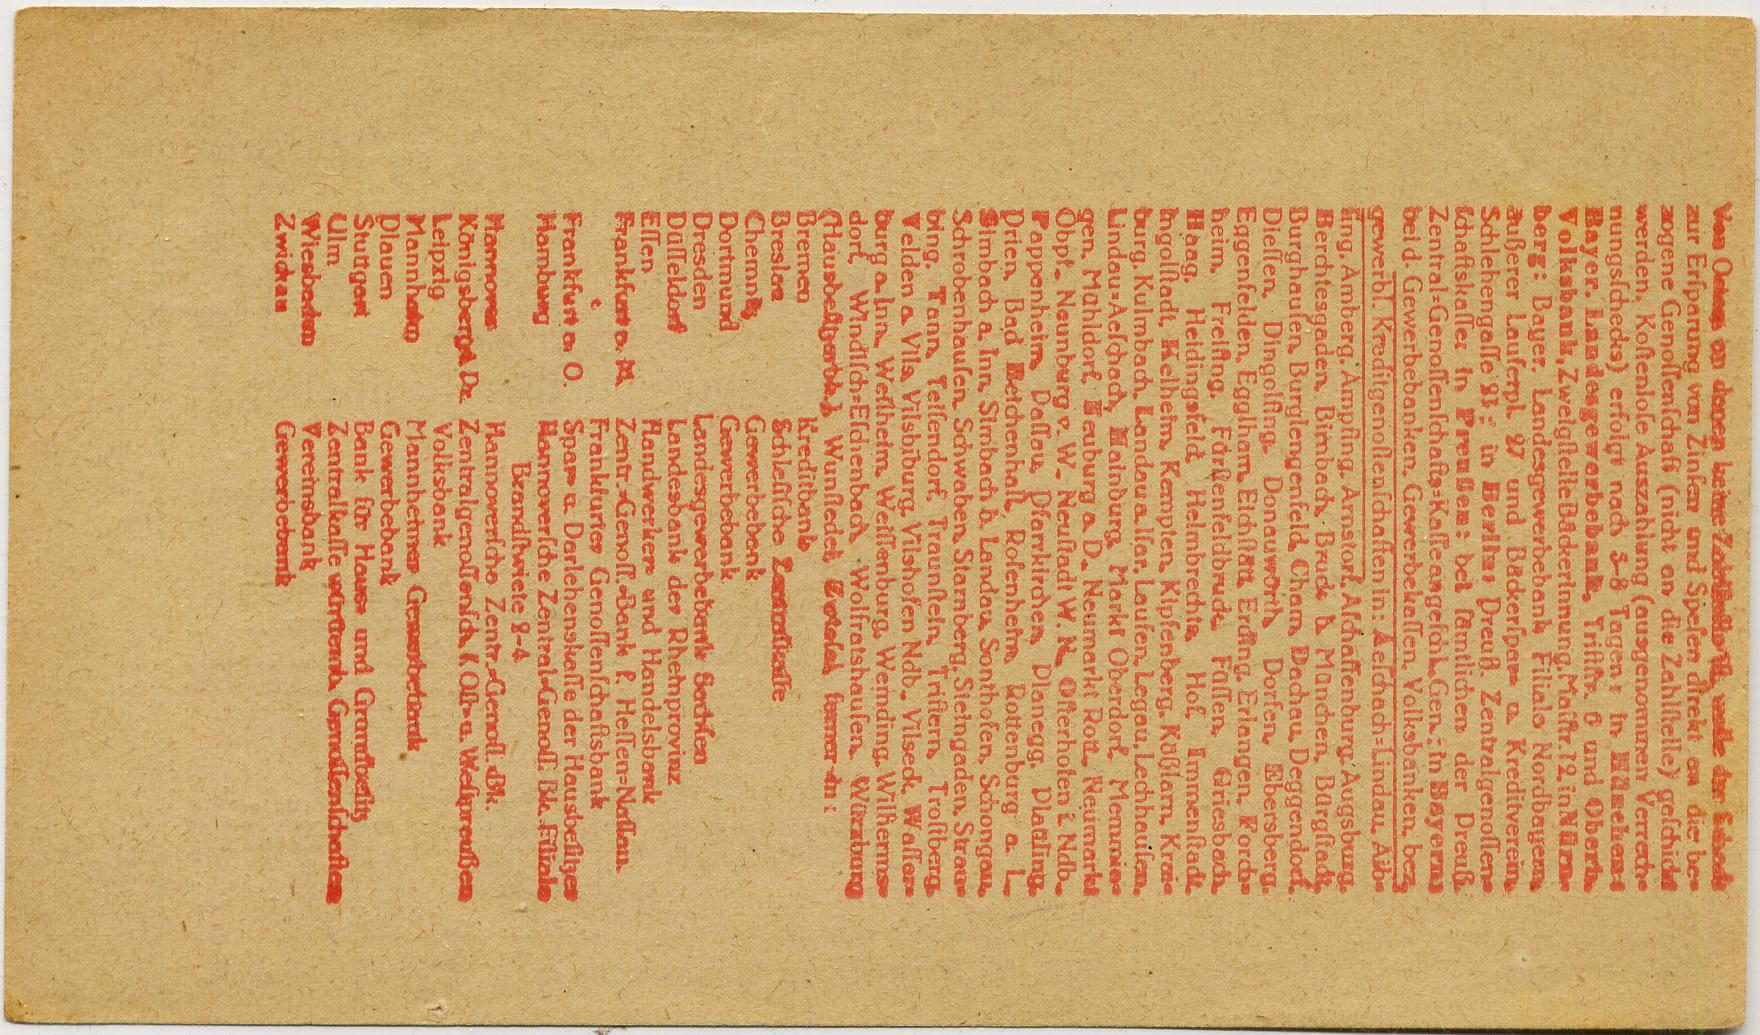 Von Orten an denen keine Zahlstelle ist, wolle der Scheck
zur Ersparung von Zinsen und Spesen direkt an die be-
zogene Genossenschaft (nicht an die Zahlstelle) geschickt
werden. Kostenlose Auszahlung (ausgenommen Verrech-
nungsschecks) erfolgt nach 3-8 Tagen: in München:
Bayer. Landesgewerbebank, Triftstr. 6 und Oberb.
Volksbank, Zweigstelle Bäckerinnung, Maistr. 12, in Nürn-
berg: Bayer. Landesgewerbebank Filiale Nordbayern,
äußerer Lauferpl. 27 und Bäckerspar- u. Kreditverein,
Schlehengasse 23; in Berlin: Preuß. Zentralgenossen-
schaftskasse; in Preußen: bei sämtlichen der Preuß.
Zentral-Genossenschafts-Kasse angeschl. Gen.; in Bayern
bei d. Gewerbebanken, Gewerbekassen, Volksbanken, bez.
gewerbl. Kreditgenossenschaften in: Aeschach-Lindau, Aib-
ling, Amberg, Ampfing, Arnstorf, Aschaffenburg, Augsburg,
Berchtesgaden, Birnbach, Bruck b. München, Burgstadt,
Burghausen, Burglengenfeld, Cham, Dachau, Deggendorf,
Diessen, Dingolfing, Donauwörth, Dorfen, Ebersberg,
Eggenfelden, Egglham, Eichstätt, Erding, Erlangen, Forch-
heim, Freising, Fürstenfeldbruck, Füssen, Griesbach,
Haag, Heidingsfeld, Helmbrechts, Hof, Immenstadt,
Ingolstadt, Kelheim, Kempten, Kipfenberg, Kößlarn, Krai-
burg, Kulmbach, Landau a. Isar, Laufen, Legau, Lechhausen,
Lindau-Aeschach, Mainburg, Markt Oberdorf, Memmin-
gen, Mühldorf, Neuburg a. D., Neumarkt Rott, Neumarkt
Oopf., Neunburg v. W., Neustadt W. N., Osterhofen i. Ndb.,
Pappenheim, Passau, Pfarrkirchen, Planegg, Plattling,
Prien, Bad Reichenhall, Rosenheim, Rottenburg a. L.,
Simbach a. Inn, Simbach b. Landau, Sonthofen, Schongau,
Schrobenhausen, Schwaben, Starnberg, Steingaden, Strau-
bing, Tann, Teisendorf, Traunstein, Triftern, Trostberg,
Velden a. Vils, Vilsbiburg, Vilshofen Ndb., Vilseck, Wasser-
burg a. Inn, Weilheim, Weissenburg, Wemding, Wilßerms-
dorf, Windisch-Eschenbach, Wolfratshausen, Würzburg
(Hausbesitzerbk.), Wunsiedel, Zwiesel, ferner in:
Bremen Kreditbank
Breslau Schlesische Zentralkasse
Chemnitz Gewerbebank
Dortmund Gewerbebank
Dresden Landesgewerbebank Sachsen
Düsseldorf Landesbank der Rheinprovinz
Essen Handwerker- und Handelsbank
Frankfurt a. M. Zentr.-Genoss.-Bank f. Hessen-Nassau
Frankfurter Genossenschaftsbank
Frankfurt a. O. Spar- u. Darlehenskasse der Hausbesitzer
Hamburg Hannoversche Zentral-Genoss. Bk. Filiale
Brandstwiete 2-4
Hannover Hannoversche Zentr.-Genoss.-Bk.
Königsberg i. Pr. Zentralgenossensch. f. Ost- u. Westpreußen
Leipzig Volksbank
Mannheim Mannheimer Gewerbebank
Plauen Gewerbebank
Stuttgart Bank für Haus- und Grundbesitz
Ulm Zentralkasse württemb. Genossenschaften
Wiesbaden Vereinsbank
Zwickau Gewerbebank